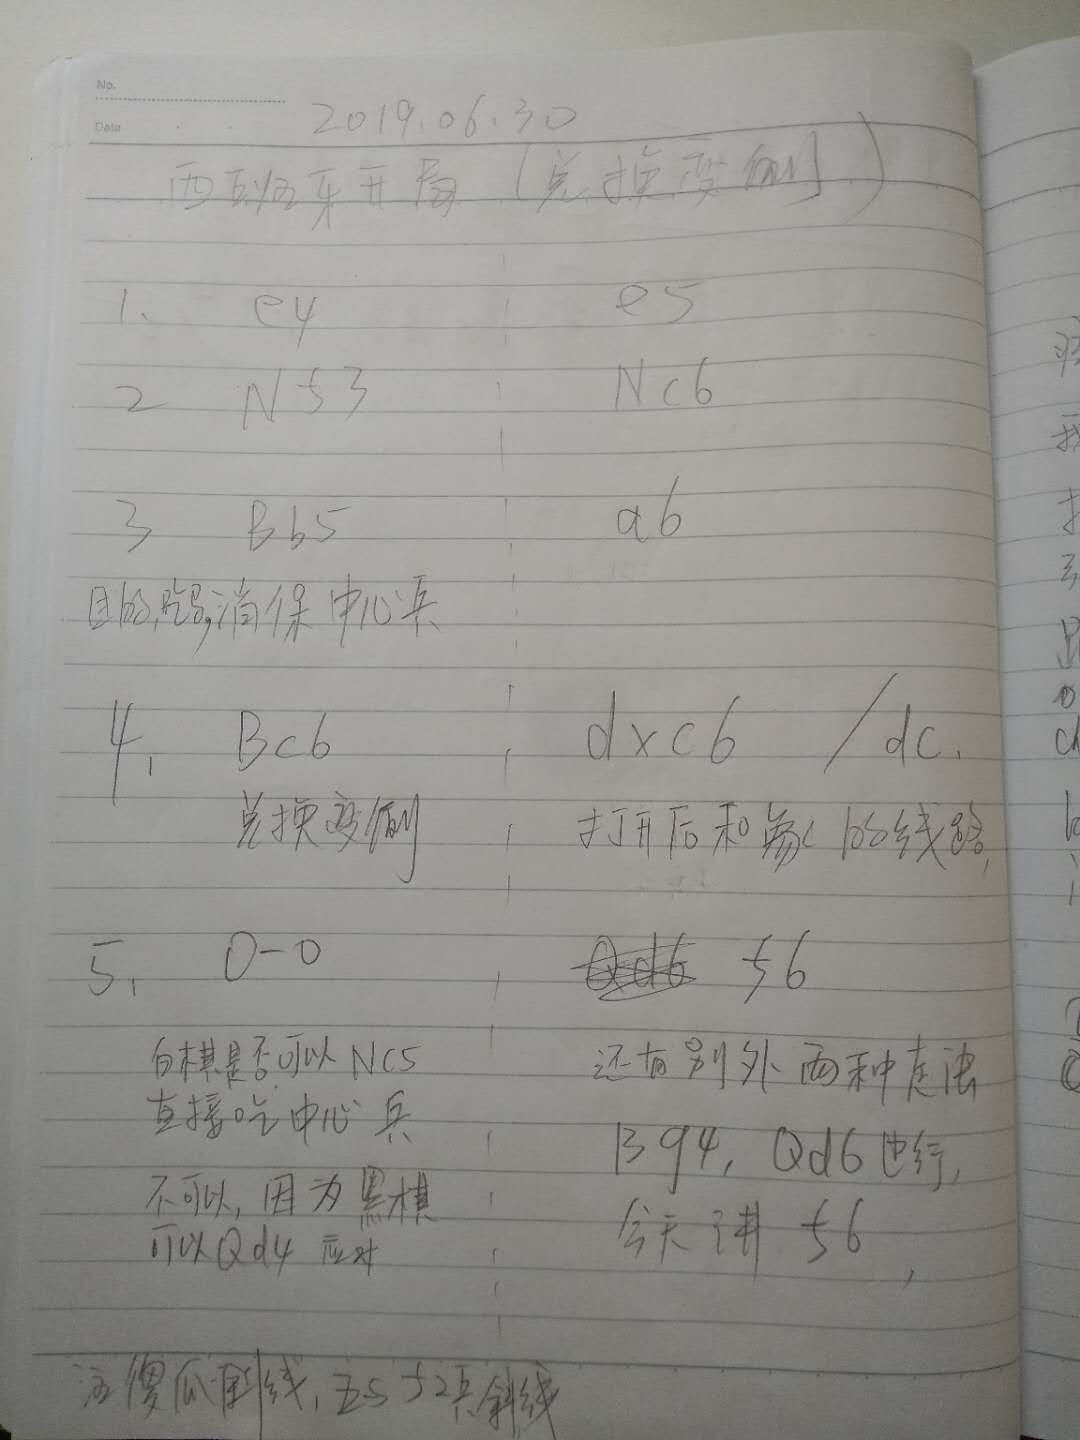 No.
Date 2019.06.30
西班牙开局（兑换变例）
1、 e4 e5
2 Nf3 Nc6
3 Bb5 a6
目的,吃马,消保中心兵
4, Bc6 dxc6 /dc.
兑换变例 打开后和象的线路,
5, 0-0 Qd6 f6
白棋是否可以NC5 还有别外两种走法
直接吃中心兵
Bg4, Qd6也行,
不可以,因为黑棋
可以Qd4应对 今天讲 f6,
傻瓜斜线, f2兵斜线